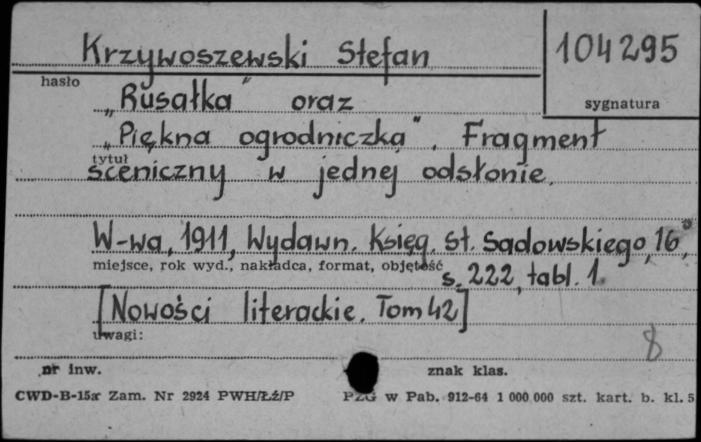 Krzywoszewski Stefan
104295
hasło
sygnatura
„Rusałka” oraz
„Piękna ogrodniczka”. Fragment
tytuł
sceniczny w jednej odsłonie.
W-wa, 1911, Wydawn. Księg. St. Sadowskiego, 16°,
miejsce, rok wyd., nakładca, format, objętość
s. 222, tabl. 1.
[Nowości literackie. Tom 42]
uwagi:
8
nr inw.
znak klas.
CWD-B-15a Zam. Nr 2924 PWH/Łź/P
PZG w Pab. 912-64 1 000 000 szt. kart. b. kl. 5